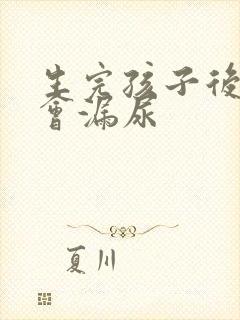 生完孩子後
會漏尿
夏川